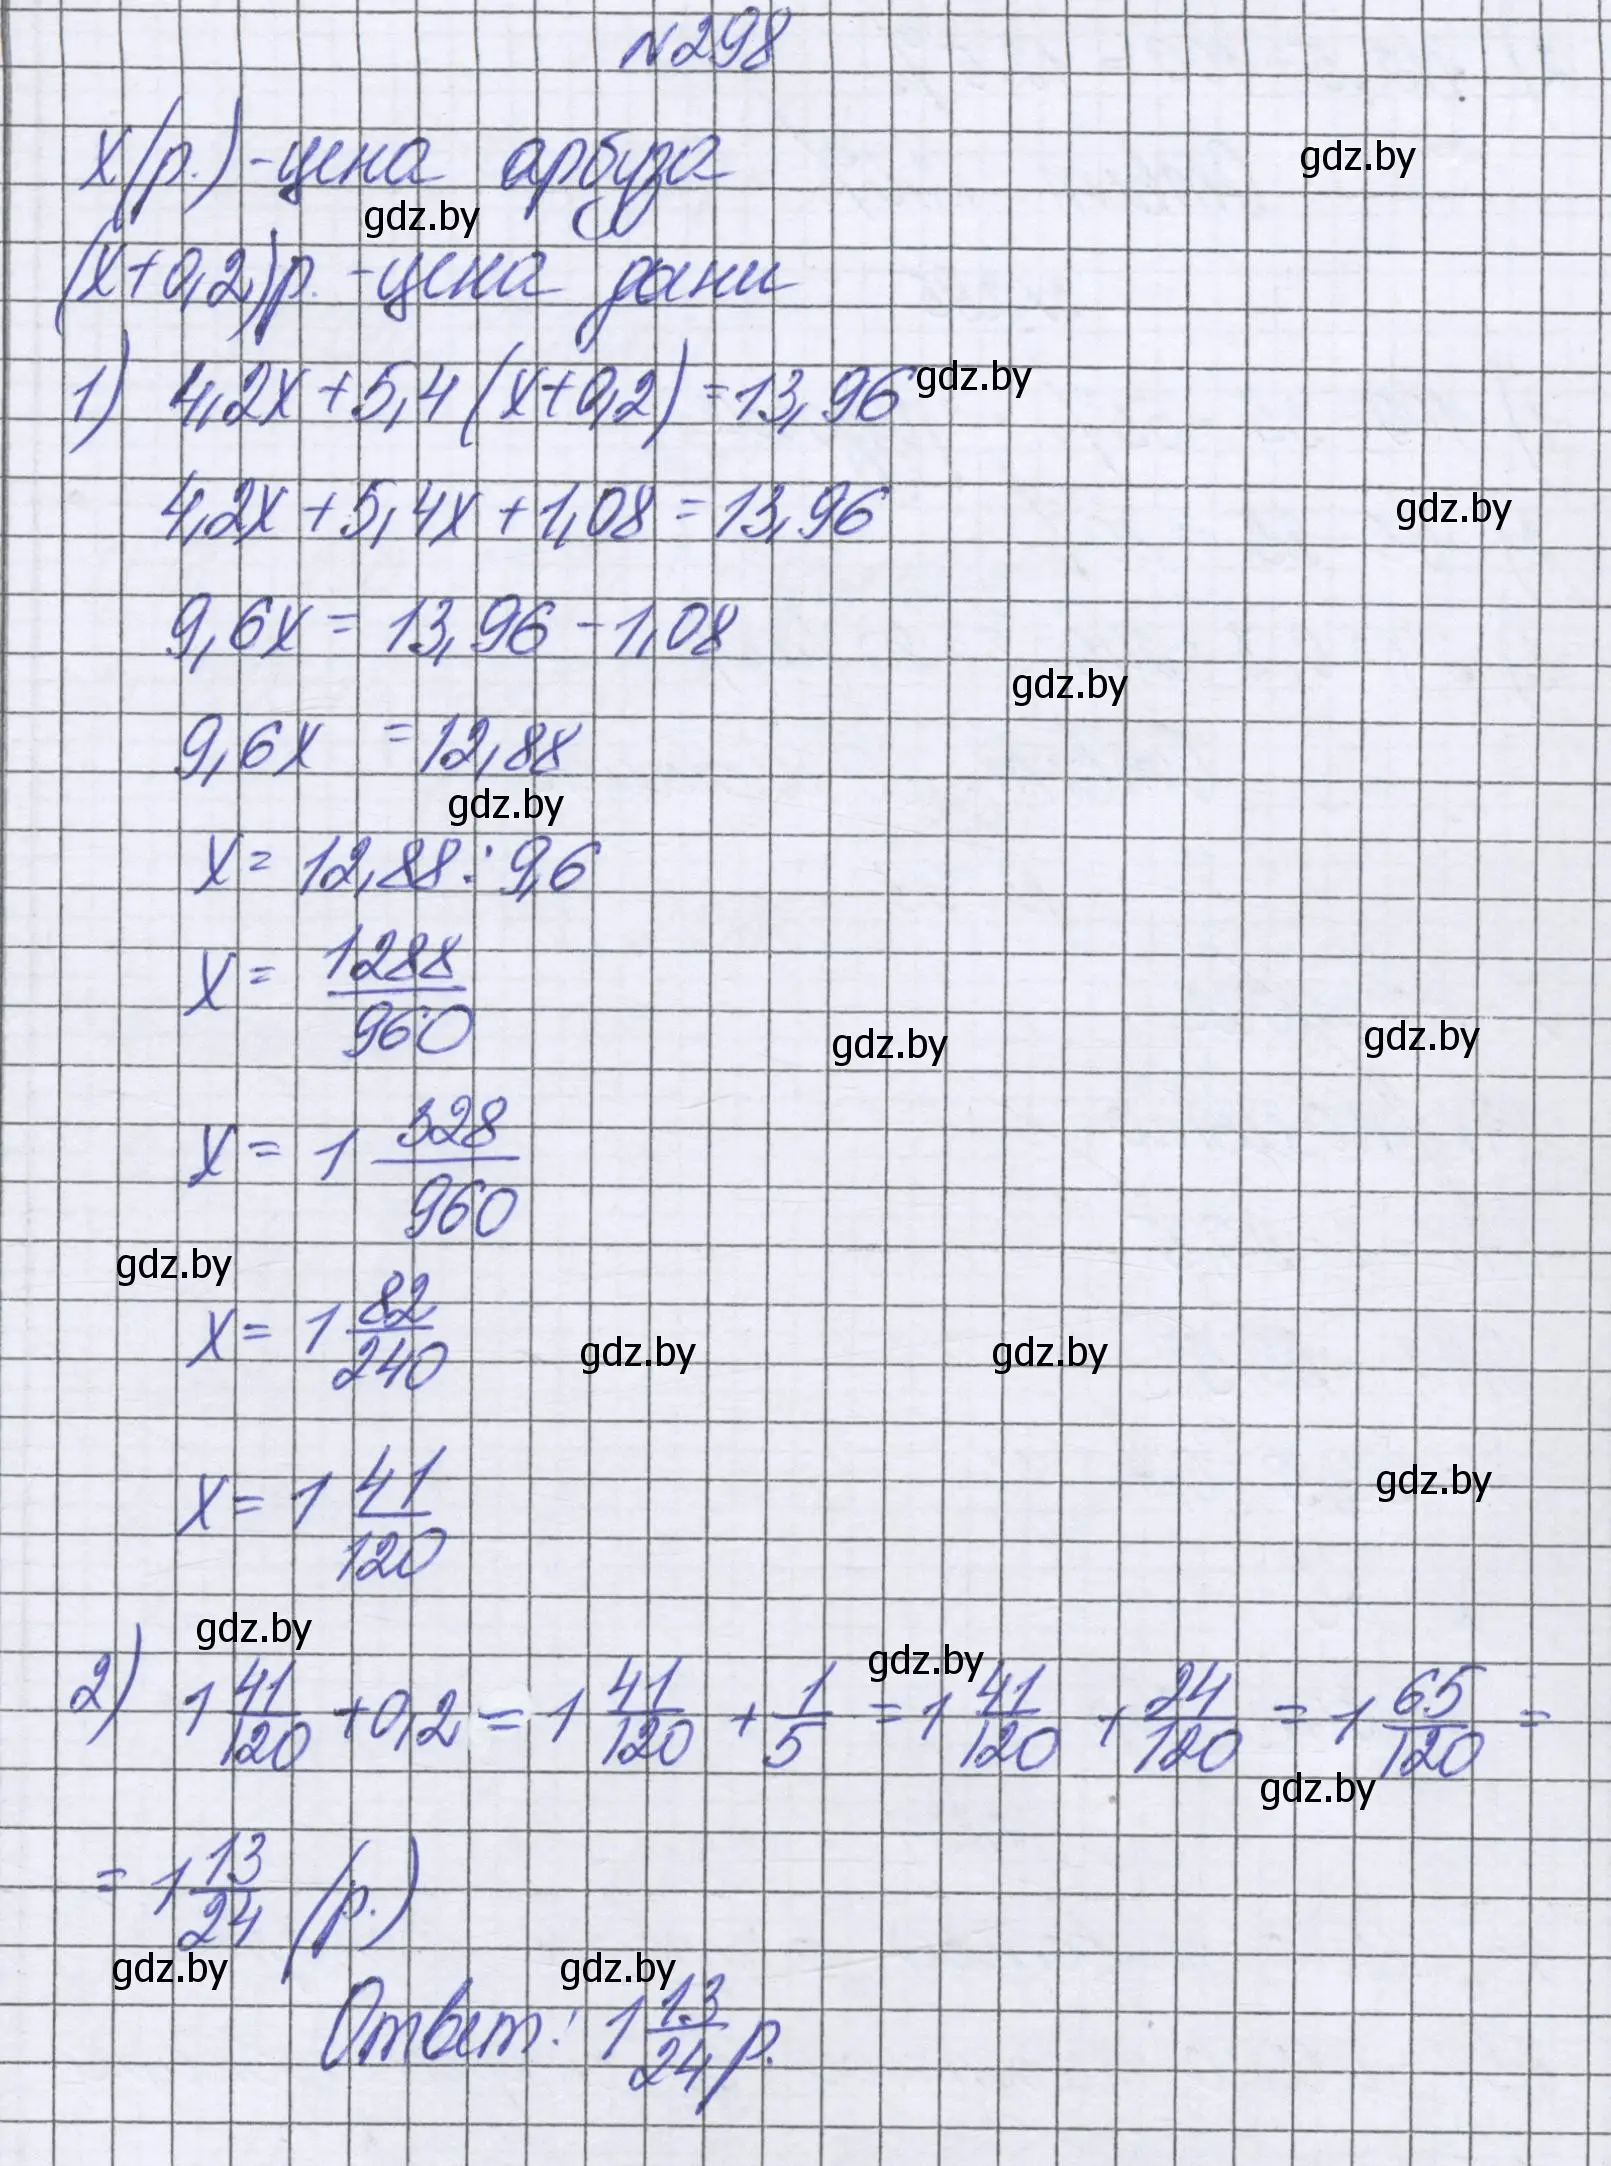 №298
x(р.) - цена арбуза
gdz.by
gdz.by
(x+0,2)р. - цена дыни
1) 4,2x + 5,4 (x+0,2) = 13,96
gdz.by
4,2x + 5,4x + 1,08 = 13,96
gdz.by
9,6x = 13,96 - 1,08
gdz.by
9,6x = 12,88
gdz.by
x = 12,88 : 9,6
x = 1288/960
gdz.by
gdz.by
x = 1 328/960
gdz.by
x = 1 82/240
gdz.by
gdz.by
x = 1 41/120
gdz.by
gdz.by
gdz.by
2) 1 41/120 + 0,2 = 1 41/120 + 1/5 = 1 41/120 + 24/120 = 1 65/120 =
gdz.by
= 1 13/24 (р.)
gdz.by
gdz.by
Ответ: 1 13/24 р.